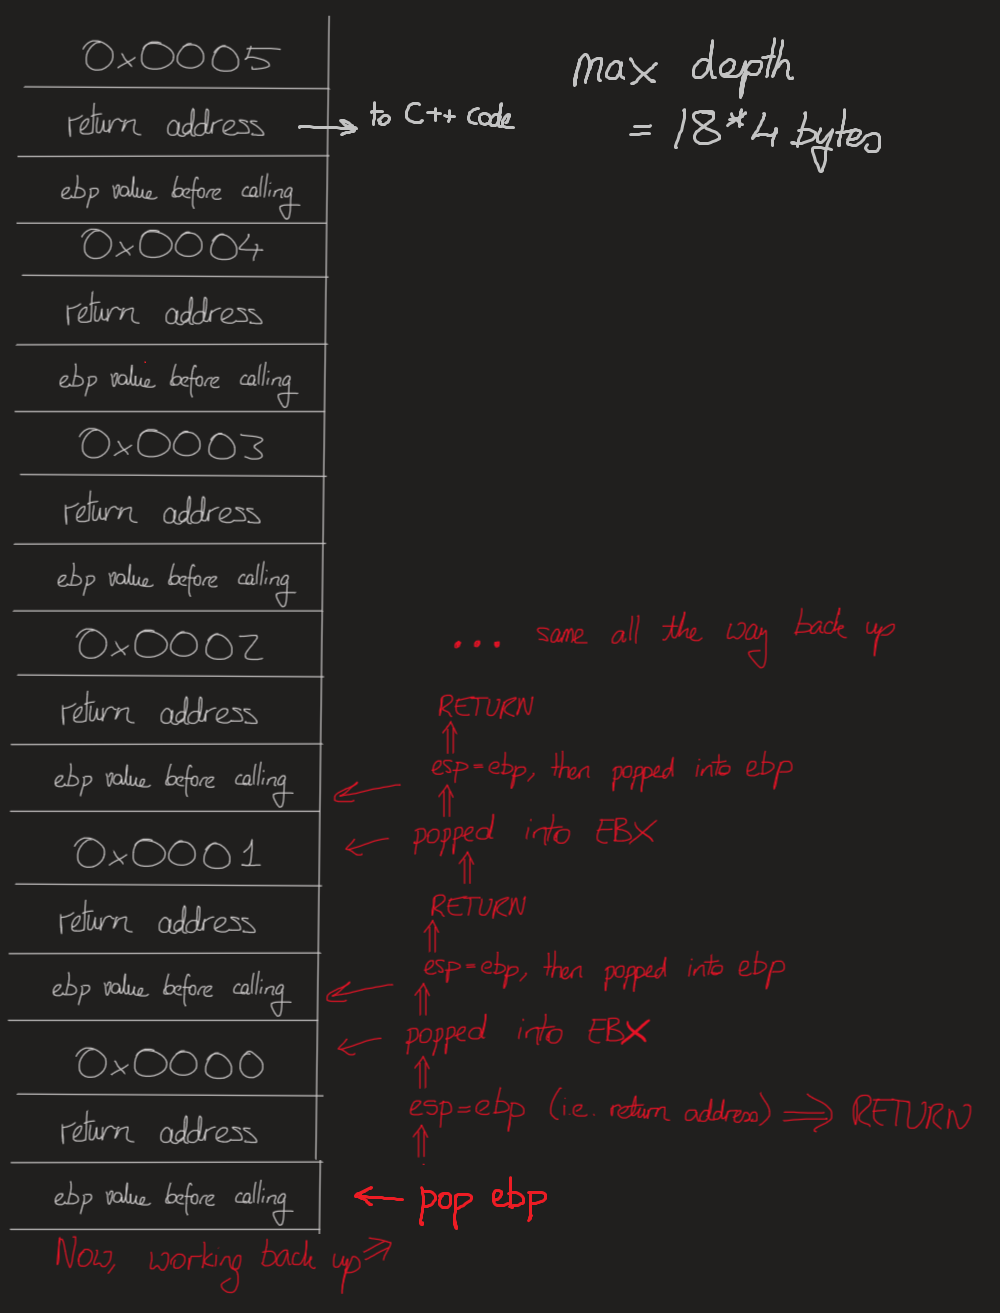 0x0005
return address → to C++ code
ebp value before calling
0x0004
return address
ebp value before calling
0x0003
return address
ebp value before calling
0x0002
return address
ebp value before calling
0x0001
return address
ebp value before calling
0x0000
return address
ebp value before calling
Now, working back up
max depth
= 18*4 bytes
... same all the way back up
RETURN
esp=ebp, then popped into ebp
popped into EBX
RETURN
esp=ebp, then popped into ebp
popped into EBX
esp=ebp (i.e. return address) ⇒ RETURN
pop ebp